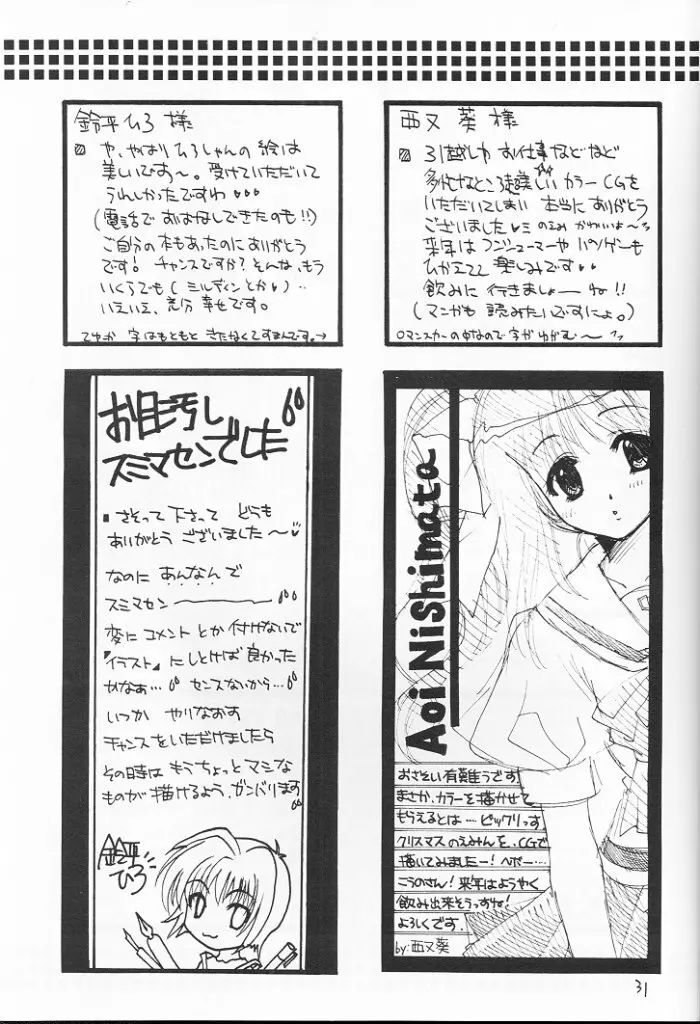 鈴平ひろ様
や、やはり ひろしゃんの 絵は
美しいです〜。受けていただいて
うれしかったですわ
(電話で おはなしできたのも!!)
ご自分の本もあったのに ありがとう
です! チャンスですか? そんな、もう
いくらでも(ミルディンとか)‥
いえいえ、充分 幸せです。
てゆか 字はもともと きたなくてすまんです。→
西又 葵 様
お仕事などなど
多忙なところ 美しい カラー CGを
いただいてしまい 本当に ありがとう
ございました のえみ かわいいよ〜
来年は コンシューマーや パソゲーも
ひかえてて 楽しみです
飲みに 行きましょーね!!
(マンガも 読みたいですにょ。)
ロマンスカーの中なので 字が ゆがむ〜
お目汚し
スミマセンでした
さそって下さって どうも
ありがとう ございました〜
なのに あんなんで
スミマセン
変に コメント とか 付けないで
「イラスト」に しとけば 良かった
かなぁ… センスないから…
いつか やりなおす
チャンスを いただけましたら
その時は もうちょっと マシな
ものが 描けるよう、ガンバります
鈴平
ひろ
Aoi Nishimata
おさそい有難うです
まさか、カラーを描かせて
もらえるとは…ビックリっす
クリスマスのえみんを、CGで
描いてみましたー! ヘボー…
こうのさん! 来年はようやく
飲み出来そうっすね!
よろしくです。
by:西又葵
31